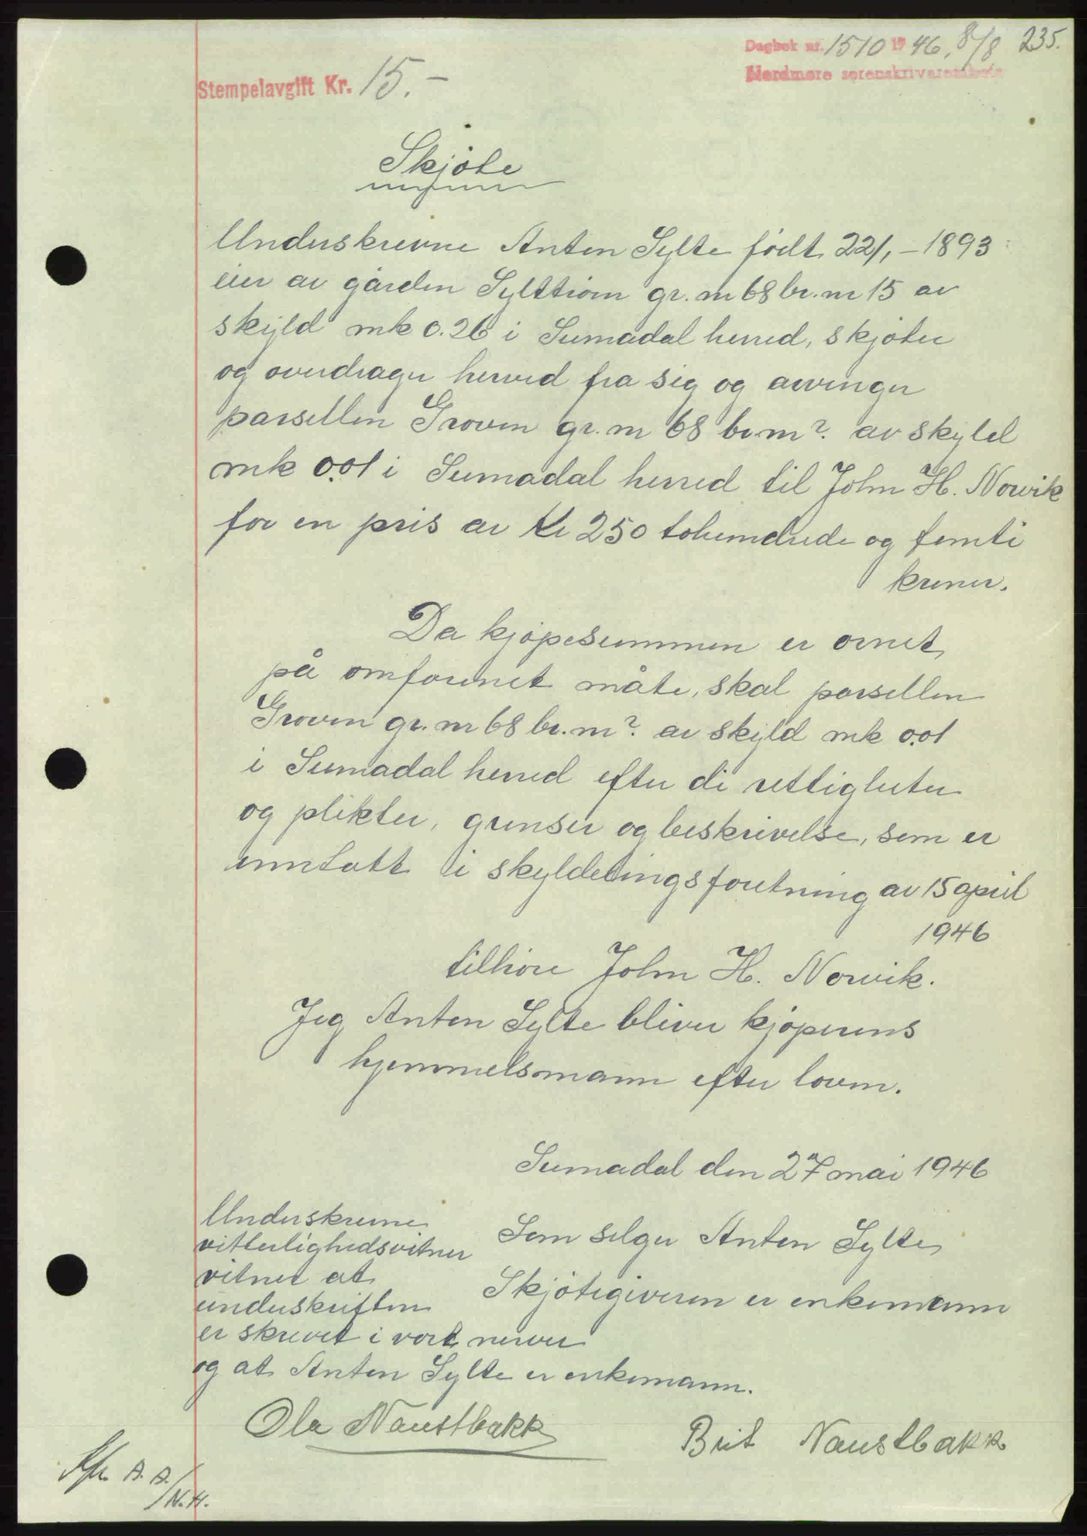 Dagbok nr. 1510 1946, 8/8 235.
Nordmøre sorenskriverembete
Stempelavgift Kr. 15.-
Skjøte
Underskrevne Anton Sylte født 22/1 - 1893
eier av gården Sylttrøm gr. nr 68 br. nr 15 av
skyld mk 0.26 i Surnadal herred, skjøter
og overdrager herved fra sig og arvinger
parsellen Groven gr. nr 68 br. nr ? av skyld
mk 0.01 i Surnadal herred til John H. Norvik
for en pris av Kr 250 tohundrede og femti
kroner.
Da kjøpesummen er ornet
på omforenet måte, skal parsellen
Groven gr. nr 68 br. nr ? av skyld mk 0.01
i Surnadal herred efter de rettigheter
og plikter, grenser og beskrivelse, som er
inntatt i skylddelingsforretning av 15 april
1946
tilhøre John H. Norvik.
Jeg Anton Sylte bliver kjøperens
hjemmelsmann efter loven.
Surnadal den 27 mai 1946
Som selger Anton Sylte
Skjøtegiveren er enkemann
Underskrevne
vitterlighedsvitner
vitner at
underskriften
er skrevet i vort nerver
og at Anton Sylte er enkemann.
Ola Naustbakk
Brit Naustbakk
A. A.
/N.H.